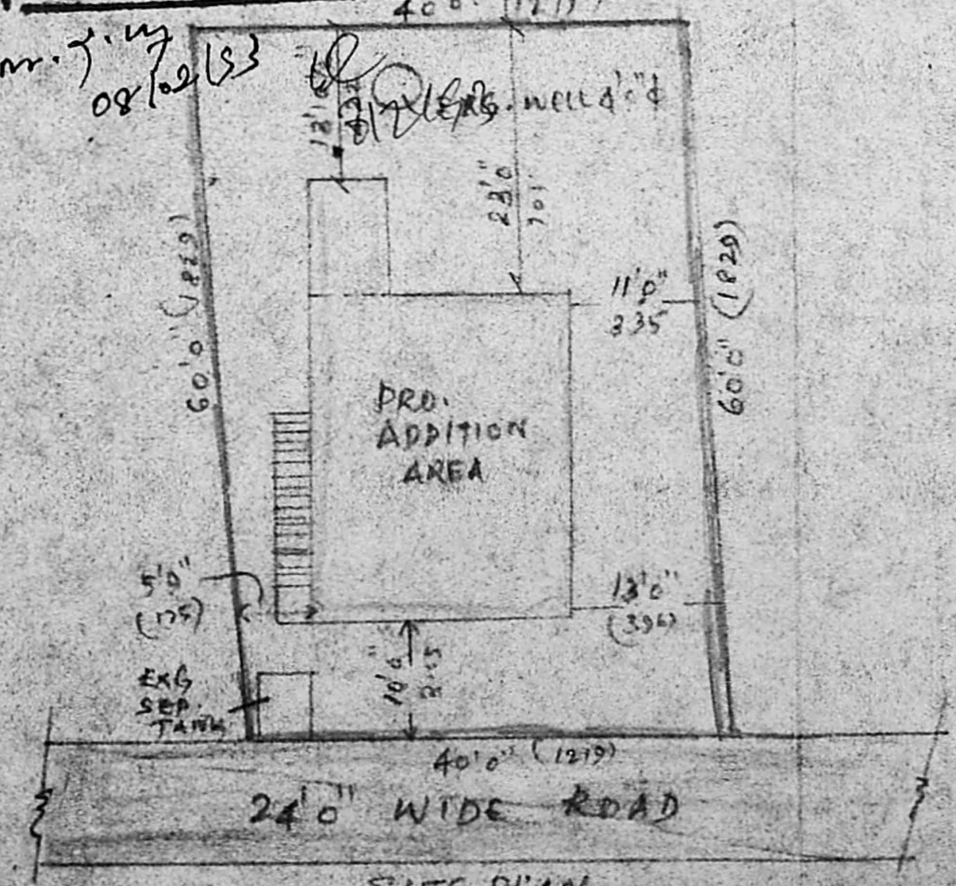 40'0" (1219)
08/02/93
EXG. WELL 4'0"ɸ
23'0"
701
60'0" (1829)
11'0"
335
60'0" (1829)
PRO.
ADDITION
AREA
5'9"
(175)
13'0"
(396)
10'0"
305
EXG
SEP.
TANK
40'0" (1219)
24'0" WIDE ROAD
SITE PLAN